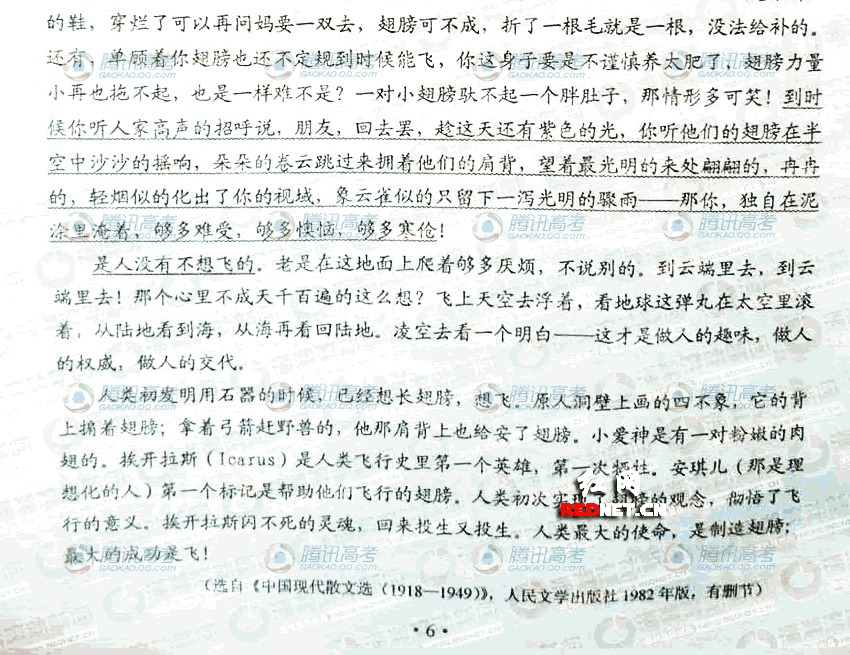 的鞋，穿烂了可以再问妈要一双去，翅膀可不成，折了一根毛就是一根，没法给补的。
还有，单顾着你翅膀也还不定规到时候能飞，你这身子要是不谨慎养太肥了，翅膀力量
小再也拖不起，也是一样难不是？一对小翅膀驮不起一个胖肚子，那情形多可笑！到时
候你听人家高声的招呼说，朋友，回去罢，趁这天还有紫色的光，你听他们的翅膀在半
空中沙沙的摇响，朵朵的卷云跳过来拥着他们的肩背，望着最光明的来处翩翩的，冉冉
的，轻烟似的化出了你的视域，象云雀似的只留下一泻光明的骤雨——那你，独自在泥
涂里淹着，够多难受，够多懊恼，够多寒伧！
是人没有不想飞的。老是在这地面上爬着够多厌烦，不说别的。到云端里去，到云
端里去！那个心里不成天千百遍的这么想？飞上天空去浮着，看地球这弹丸在太空里滚
着，从陆地看到海，从海再看回陆地。凌空去看一个明白——这才是做人的趣味，做人
的权威，做人的交代。
人类初发明用石器的时候，已经想长翅膀，想飞。原人洞壁上画的四不象，它的背
上掮着翅膀；拿着弓箭赶野兽的，他那肩背上也给安了翅膀。小爱神是有一对粉嫩的肉
翅的。挨开拉斯（Icarus）是人类飞行史里第一个英雄，第一次牺牲。安琪儿（那是理
想化的人）第一个标记是帮助他们飞行的翅膀。人类初次实现了翅膀的观念，彻悟了飞
行的意义。挨开拉斯闪不死的灵魂，回来投生又投生。人类最大的使命，是制造翅膀；
最大的成功是飞！
（选自《中国现代散文选（1918—1949）》，人民文学出版社1982年版，有删节）
·6·
腾讯高考
GAOKAO.QQ.COM
红网
REDNET.CN